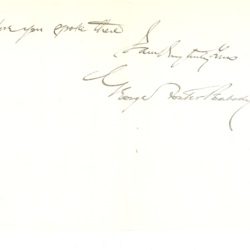 you spoke there
I am very truly yours
George Foster Peabody